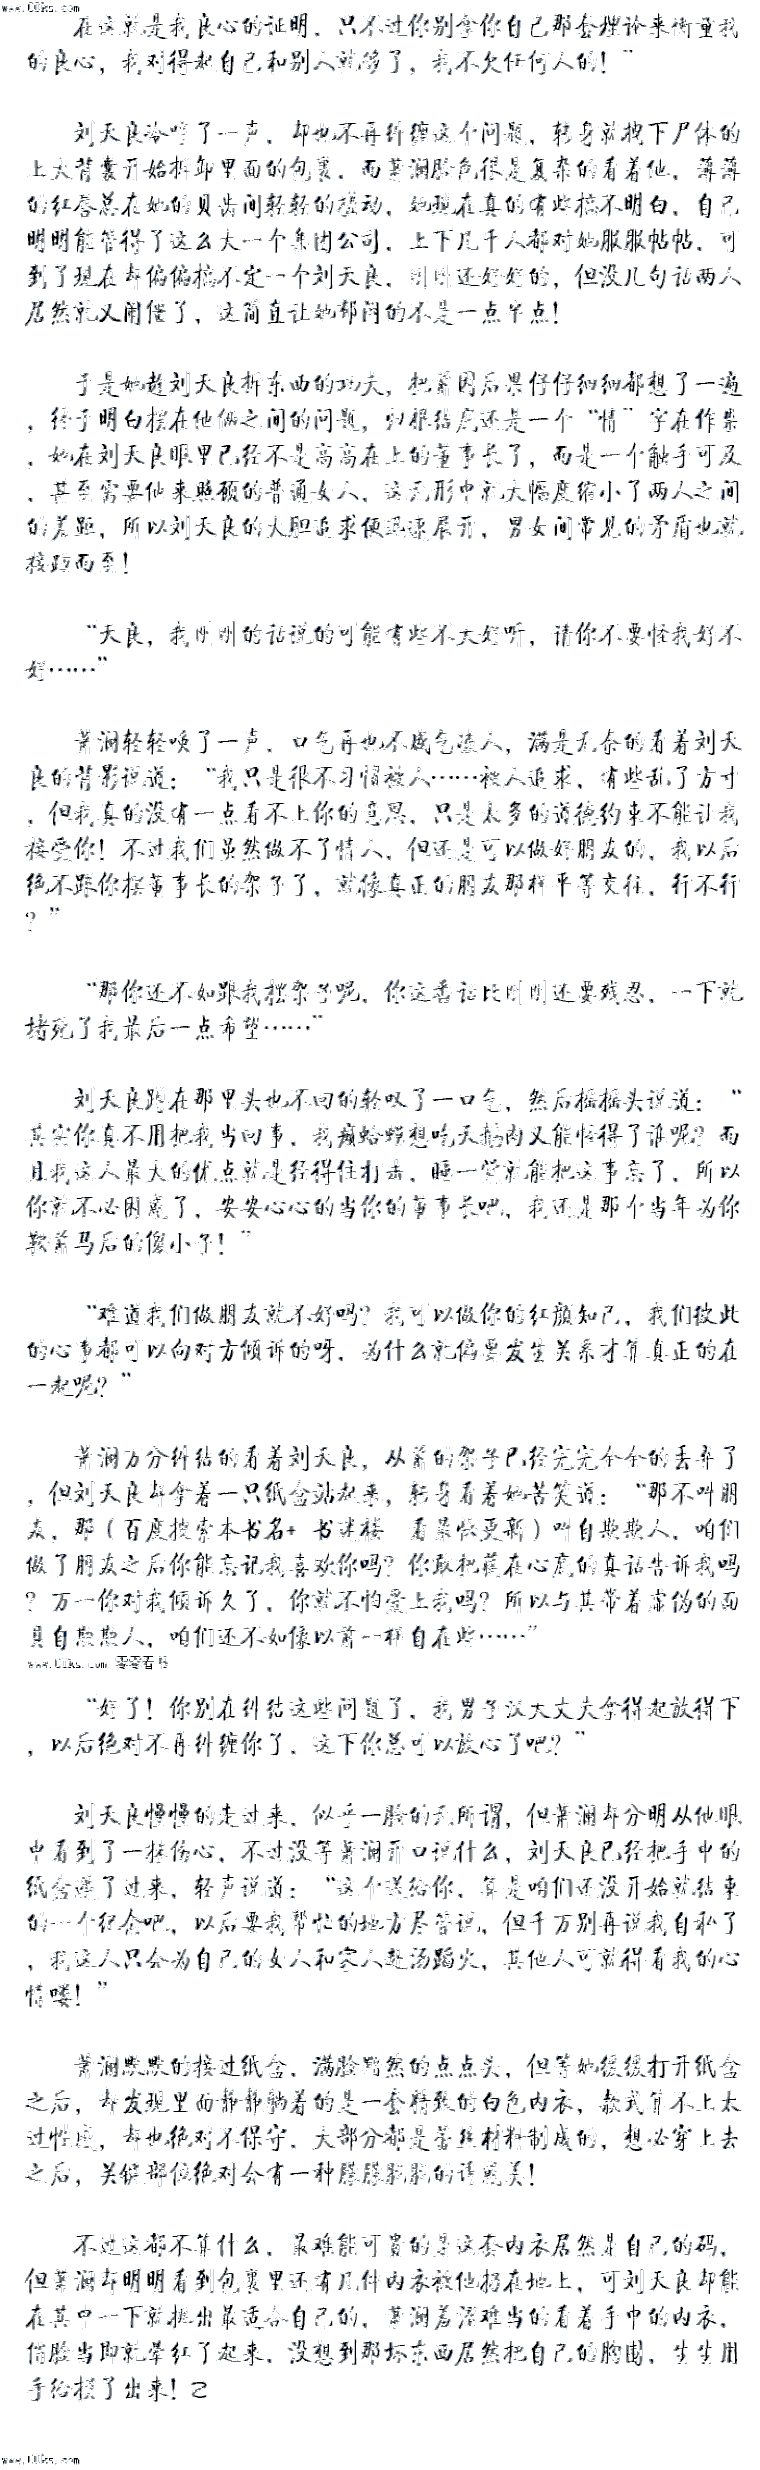 www.00ks.com
在这就是我良心的证明，只不过你别拿你自己那套理论来衡量我
的良心，我对得起自己和别人就够了，我不欠任何人的！”
刘天良冷哼了一声，却也不再纠缠这个问题，转身就拽下尸体的
上大背囊开始拆卸里面的包裹，而萧澜脸色很是复杂的看着他，薄薄
的红唇总在她的贝齿间轻轻的搓动，她现在真的有些搞不明白，自己
明明能管得了这么大一个集团公司，上下几千人都对她服服帖帖，可
到了现在却偏偏搞不定一个刘天良，刚刚还好好的，但没几句话两人
居然就又闹僵了，这简直让她郁闷的不是一点半点！
于是她趁刘天良拆东西的功夫，把前因后果仔仔细细都想了一遍
，终于明白摆在他俩之间的问题，归根结底还是一个“情”字在作祟
，她在刘天良眼里已经不是高高在上的董事长了，而是一个触手可及
，甚至需要他来照顾的普通女人，这无形中就大幅度缩小了两人之间
的差距，所以刘天良的大胆追求便迅速展开，男女间常见的矛盾也就
接踵而至！
“天良，我刚刚的话说的可能有些不大好听，请你不要怪我好不
好……”
萧澜轻轻唤了一声，口气再也不盛气凌人，满是无奈的看着刘天
良的背影说道：“我只是很不习惯被人……被人追求，有些乱了方寸
，但我真的没有一点看不上你的意思，只是太多的道德约束不能让我
接受你！不过我们虽然做不了情人，但还是可以做好朋友的，我以后
绝不跟你摆董事长的架子了，就像真正的朋友那样平等交往，行不行
？”
“那你还不如跟我摆架子呢，你这番话比刚刚还要残忍，一下就
堵死了我最后一点希望……”
刘天良蹲在那里头也不回的轻叹了一口气，然后摇摇头说道：“
其实你真不用把我当回事，我癞蛤蟆想吃天鹅肉又能怪得了谁呢？而
且我这人最大的优点就是经得住打击，睡一觉就能把这事忘了，所以
你就不必困扰了，安安心心的当你的董事长吧，我还是那个当年为你
鞍前马后的傻小子！”
“难道我们做朋友就不好吗？我可以做你的红颜知己，我们彼此
的心事都可以向对方倾诉的呀，为什么就偏要发生关系才算真正的在
一起呢？”
萧澜万分纠结的看着刘天良，从前的架子已经完完全全的丢弃了
，但刘天良却拿着一只纸盒站起来，转身看着她苦笑道：“那不叫朋
友，那（百度搜索本书名+ 书迷楼 看最快更新）叫自欺欺人，咱们
做了朋友之后你能忘记我喜欢你吗？你敢把藏在心底的真话告诉我吗
？万一你对我倾诉久了，你就不怕爱上我吗？所以与其带着虚伪的面
具自欺欺人，咱们还不如像以前一样自在些……”
www.00ks.com 零零看书
“好了！你别在纠结这些问题了，我男子汉大丈夫拿得起放得下
，以后绝对不再纠缠你了，这下你总可以放心了吧？”
刘天良慢慢的走过来，似乎一脸的无所谓，但萧澜却分明从他眼
中看到了一抹伤心，不过没等萧澜开口说什么，刘天良已经把手中的
纸盒递了过来，轻声说道：“这个送给你，算是咱们还没开始就结束
的一个纪念吧，以后要我帮忙的地方尽管说，但千万别再说我自私了
，我这人只会为自己的女人和家人赴汤蹈火，其他人可就得看我的心
情喽！”
萧澜默默的接过纸盒，满脸黯然的点点头，但等她缓缓打开纸盒
之后，却发现里面静静躺着的是一套精致的白色内衣，款式算不上太
过性感，却也绝对不保守，大部分都是蕾丝材料制成的，想必穿上去
之后，关键部位绝对会有一种朦朦胧胧的诱惑美！
不过这都不算什么，最难能可贵的是这套内衣居然是自己的码，
但萧澜却明明看到包裹里还有几件内衣被他扔在地上，可刘天良却能
在其中一下就挑出最适合自己的，萧澜羞涩难当的看着手中的内衣，
俏脸当即就晕红了起来，没想到那坏东西居然把自己的胸围，生生用
手给摸了出来！Z
www.00ks.com